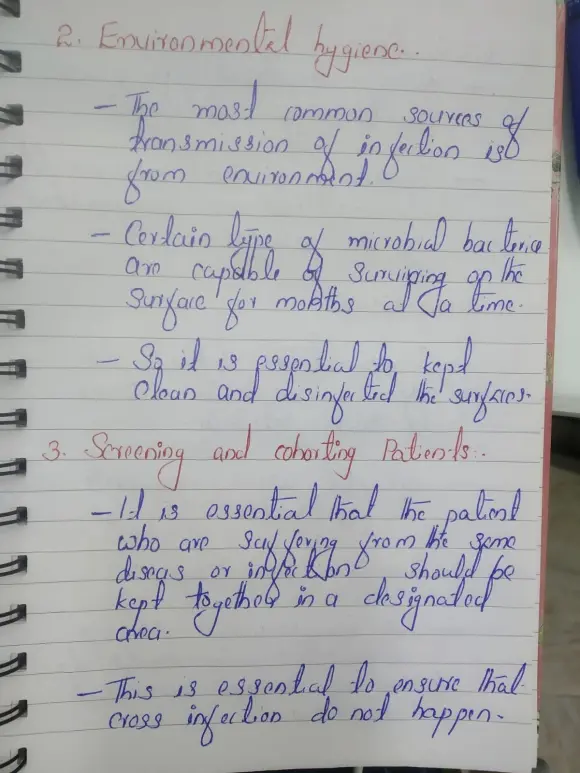 2. Environmental hygiene..
- The most common sources of
transmission of infection is
from environment.
- Certain type of microbial bacteria
are capable of surviving on the
surface for months at a time.
- So it is essential to kept
clean and disinfected the surfaces.
3. Screening and cohorting Patients:.
- It is essential that the patient
who are suffering from the same
diseas or infection should be
kept together in a designated
area.
- This is essential to ensure that
cross infection do not happen.